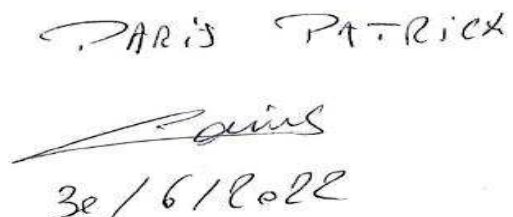 PARIS PATRICK
Paris
30/6/2022